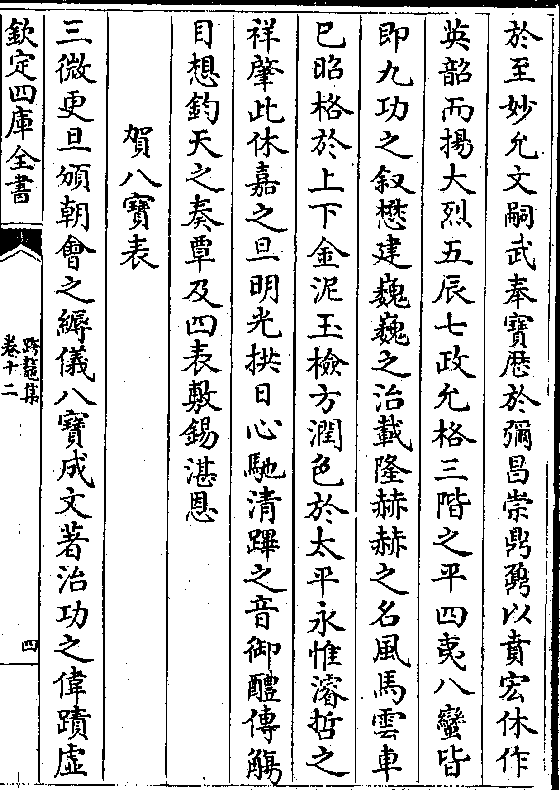 於至妙允文嗣武奉寶厯於彌昌崇鼎鼐以賁宏休作
英韶而揚大烈五辰七政允格三階之平四夷八蠻皆
即九功之叙懋建巍巍之治載隆赫赫之名風馬雲車
巳昭格於上下金泥玉檢方潤色於太平永惟濬哲之
祥肇此休嘉之旦明光拱日心馳清蹕之音御醴傳觴
目想鈞天之奏覃及四表敷錫湛恩
賀八寶表
三微更旦頒朝會之縟儀八寶成文著治功之偉蹟虚
欽定四庫全書
跨鼇集
卷十二
四